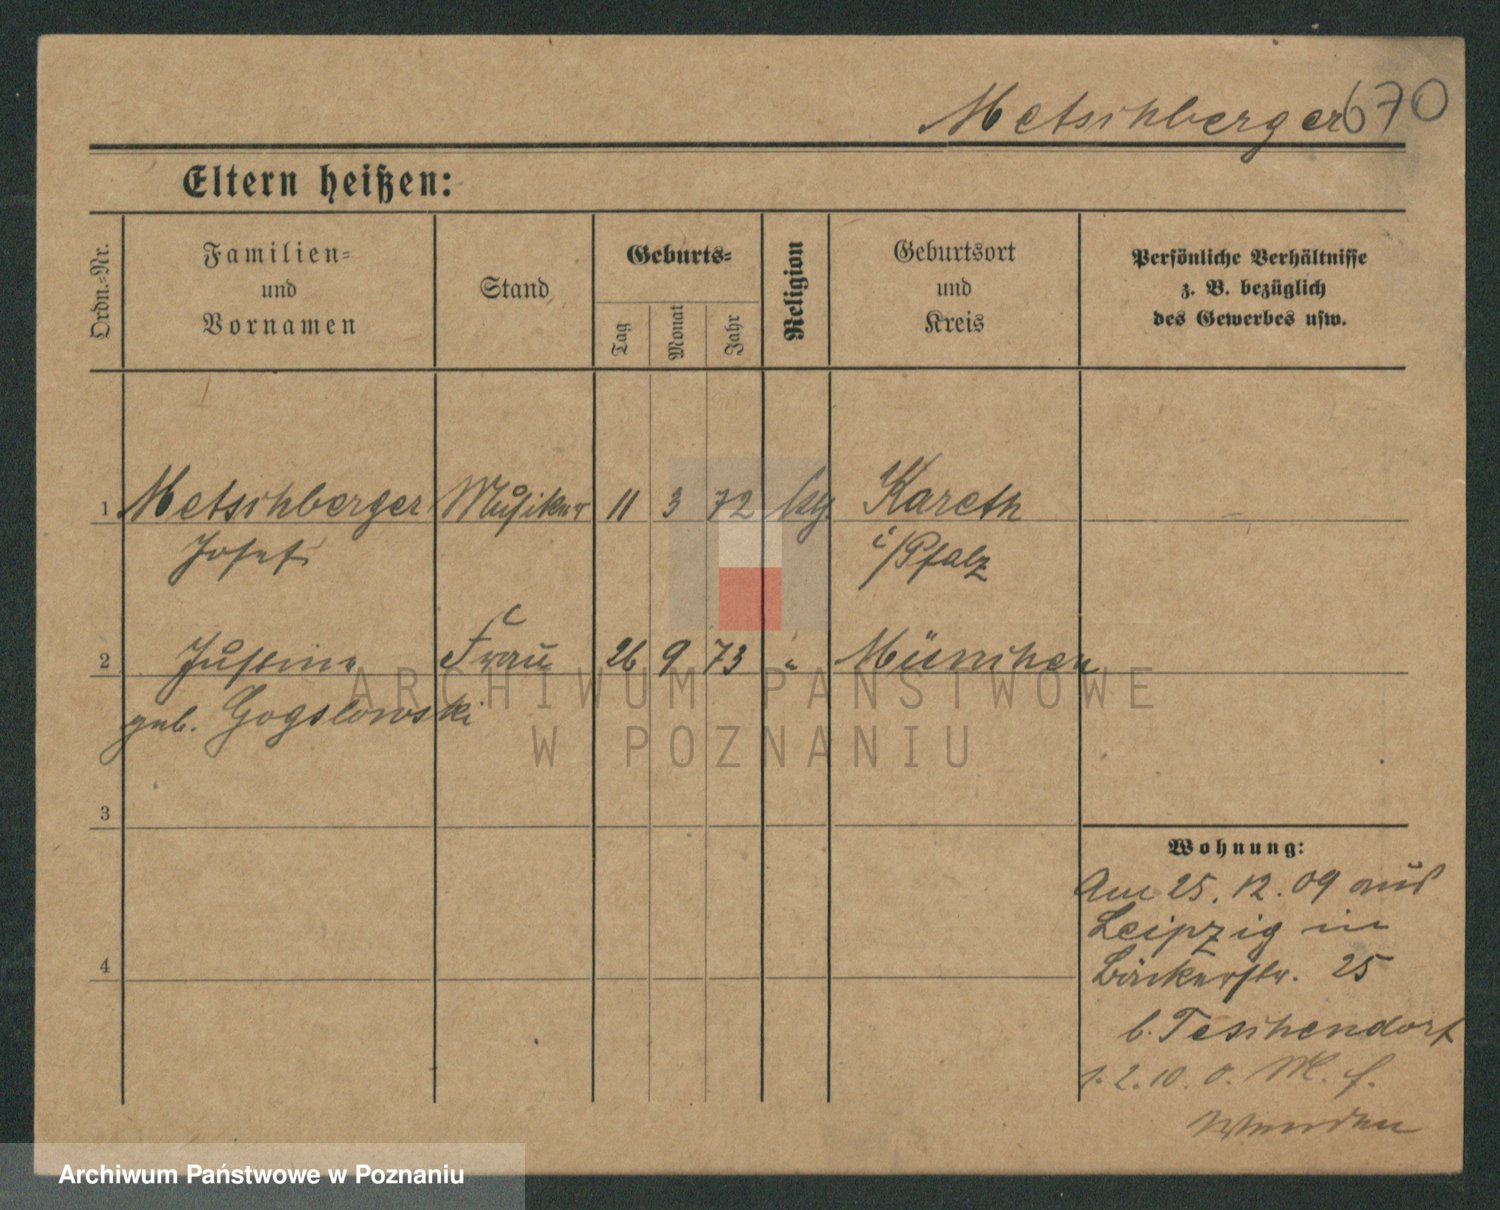 Metschberger 670
Eltern heißen:
Ordn.-Nr.
Familien-
und
Vornamen
Stand
Geburts-
Tag
Monat
Jahr
Religion
Geburtsort
und
Kreis
Persönliche Verhältnisse
z. B. bezüglich
des Gewerbes usw.
1 Metschberger Musiker 11 3 72 Kareth
Josef i/Pfalz
2 Justine Frau 26 9 73 " München
geb. Gogslowski
3
4
Wohnung:
Am 25. 12. 09 aus
Leipzig in
Bäckerstr. 25
b. Teschendorf
1. 2. 10. o. M. f.
ARCHIWUM PAŃSTWOWE
W POZNANIU
Archiwum Państwowe w Poznaniu